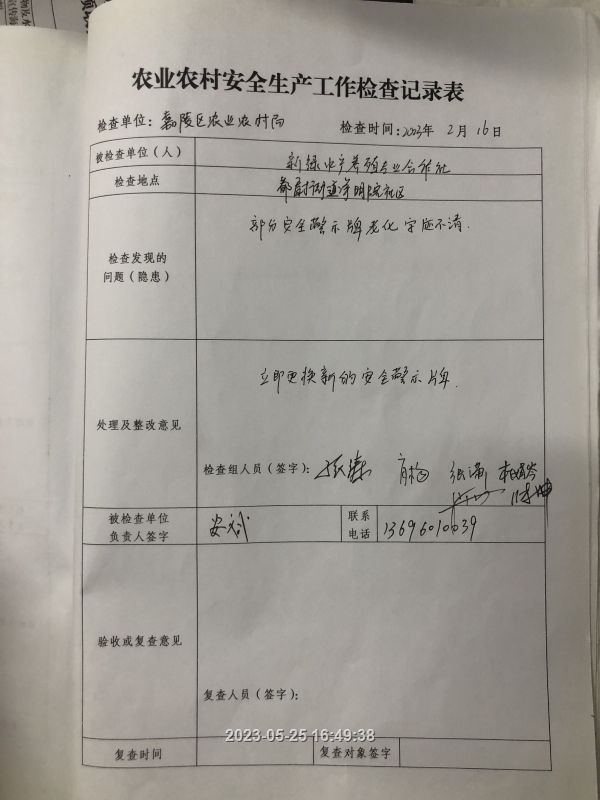 农业农村安全生产工作检查记录表
检查单位：嘉陵区农业农村局 检查时间：2023年 2月 16日
被检查单位（人） 新绿水产养殖专业合作社
检查地点 都尉街道学明院社区
部分安全警示牌老化字迹不清.
检查发现的
问题（隐患）
立即更换新的安全警示牌.
处理及整改意见
检查组人员（签字）：
被检查单位
负责人签字
联系
电话 13696010039
验收或复查意见
复查人员（签字）：
2023-05-25 16:49:38
复查时间 复查对象签字